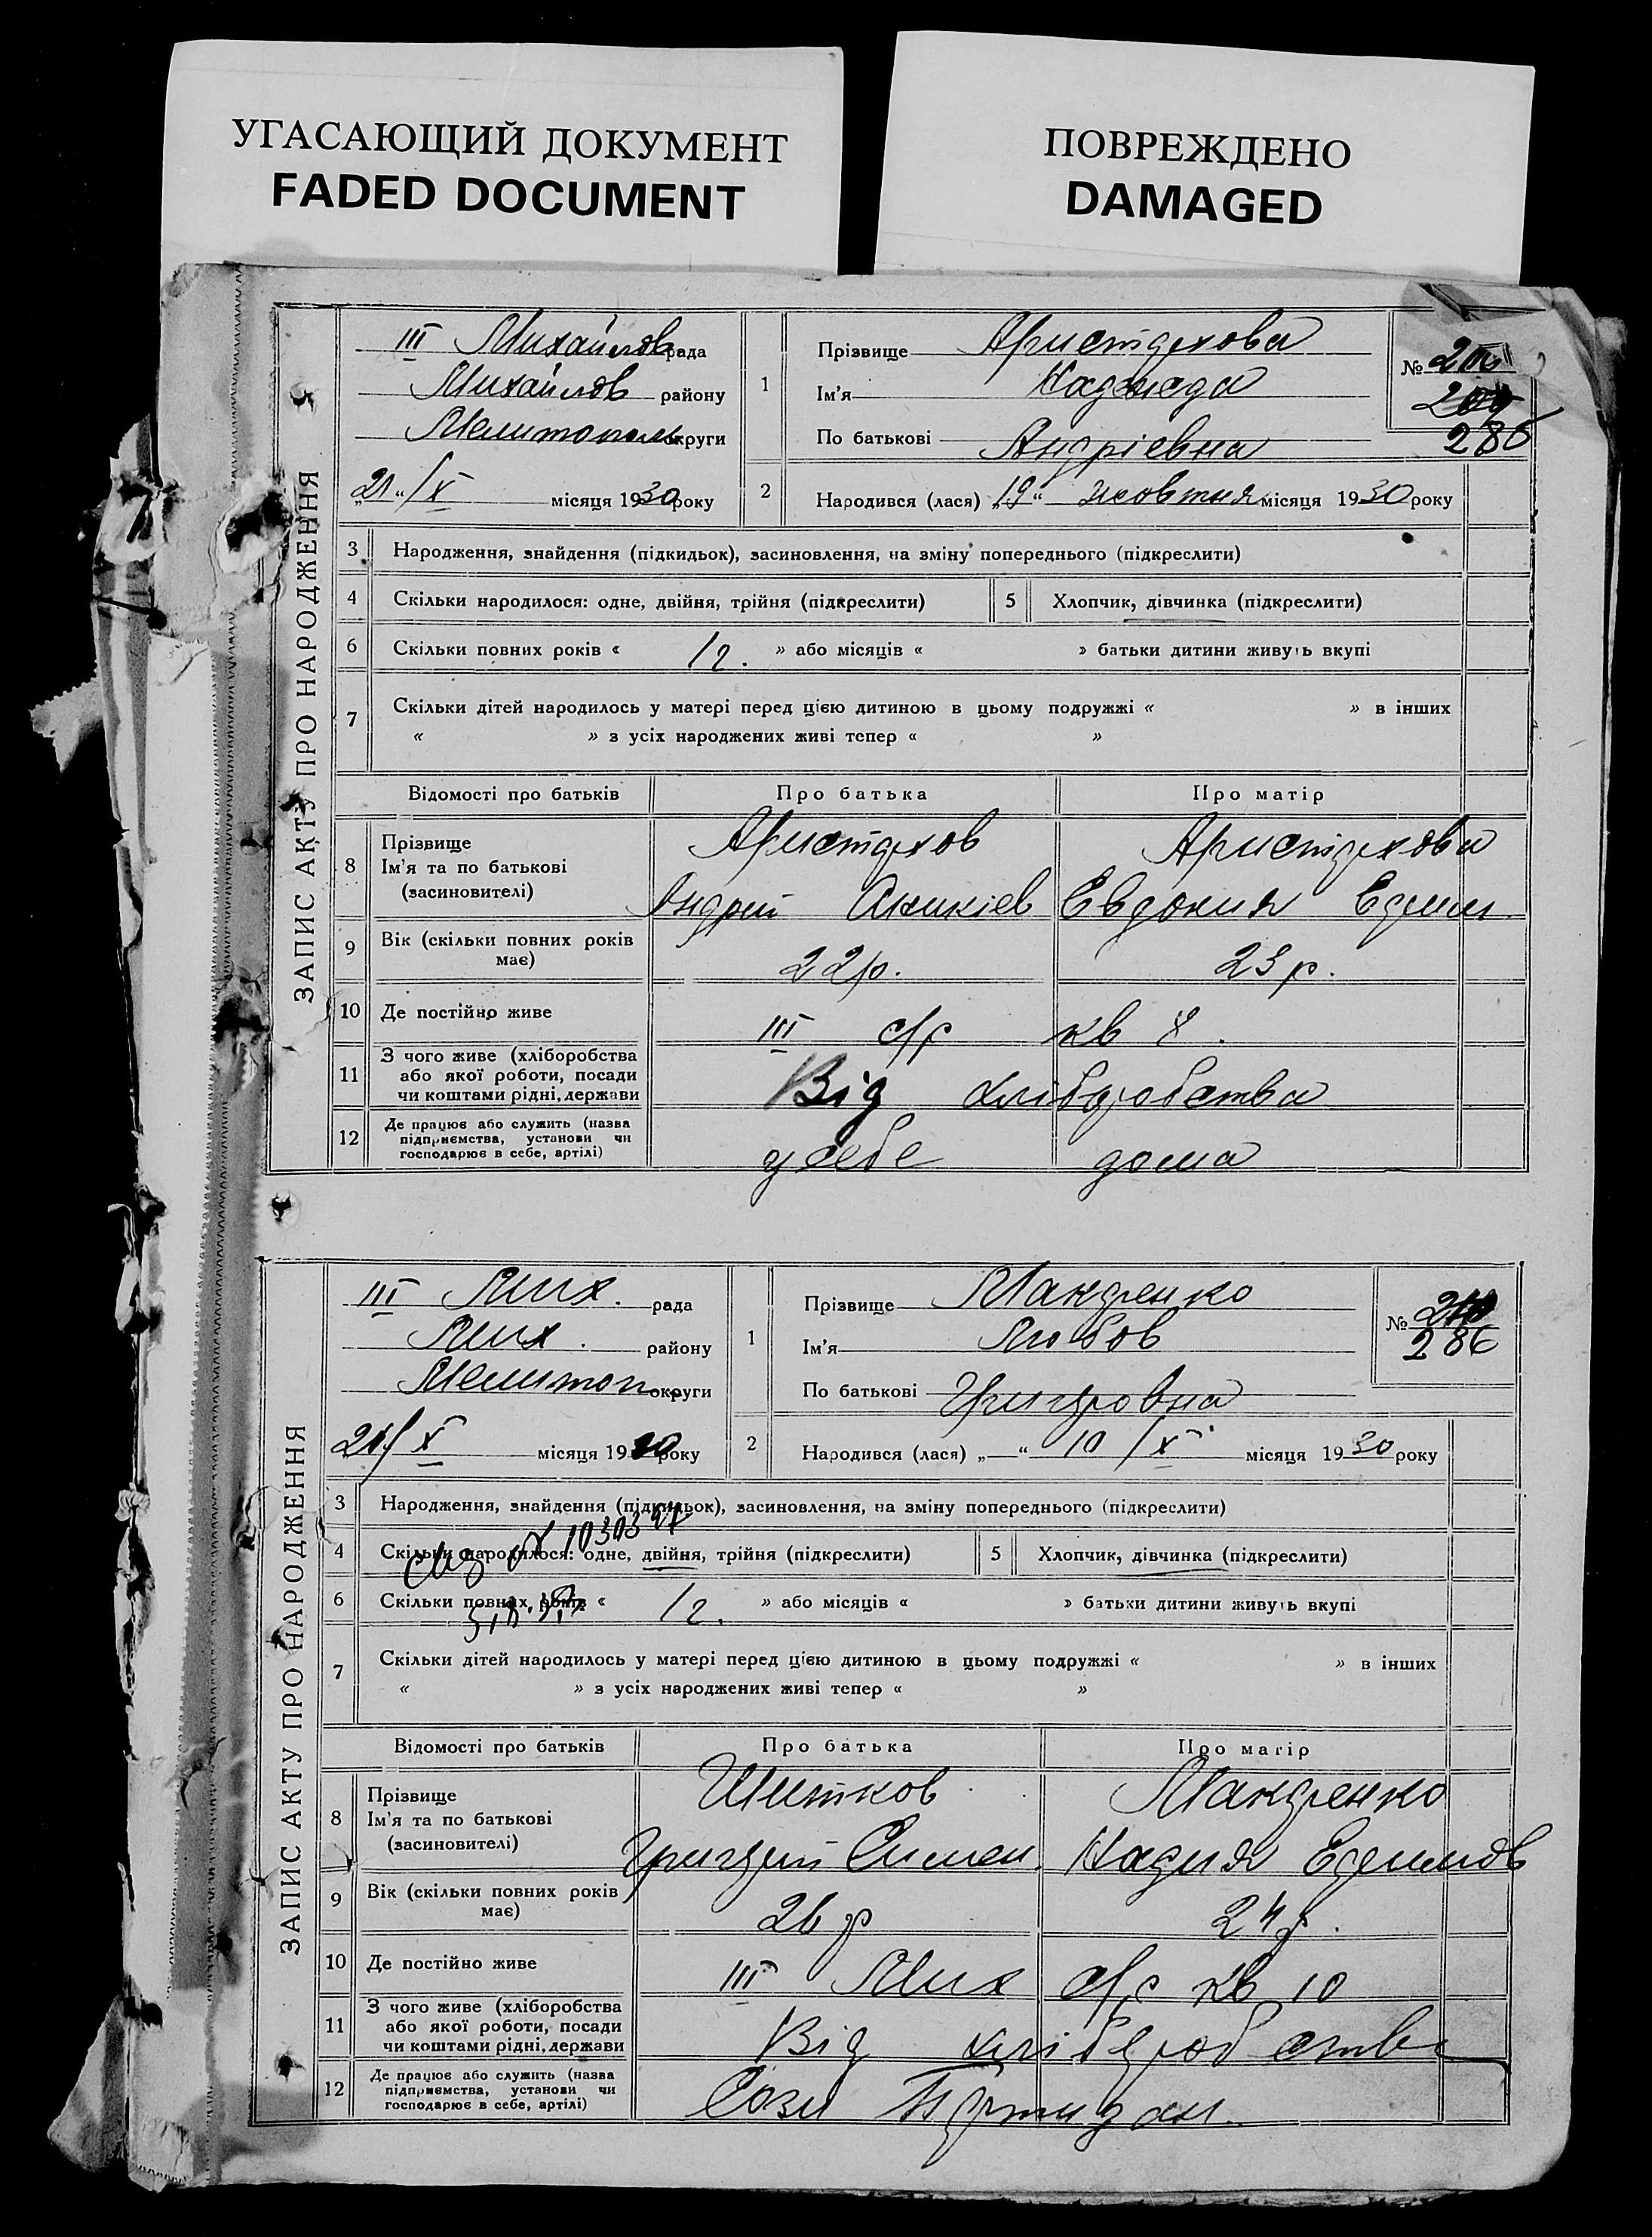 УГАСАЮЩИЙ ДОКУМЕНТ
FADED DOCUMENT
ПОВРЕЖДЕНО
DAMAGED
ЗАПИС АКТУ ПРО НАРОДЖЕННЯ
III Михайлов рада
Михайлов району
Мелитополь округи
„21“/X місяця 1930 року
1 Прізвище Аристархова
Ім'я Надежда
По батькові Андріевна
№
286
2 Народився (лася) „19“ жовтня місяця 1930 року
3 Народження, знайдення (підкидьок), засиновлення, на зміну попереднього (підкреслити)
4 Скільки народилося: одне, двійня, трійня (підкреслити) 5 Хлопчик, дівчинка (підкреслити)
6 Скільки повних років « 1 г. » або місяців « » батьки дитини живуть вкупі
7 Скільки дітей народилось у матері перед цією дитиною в цьому подружжі « » в інших
« » з усіх народжених живі тепер « »
Відомості про батьків Про батька Про матір
8 Прізвище
Ім'я та по батькові
(засиновителі)
Аристархов Аристархова
Андрій Евдокия
9 Вік (скільки повних років має) 22 р. 23 р.
10 Де постійно живе III с/р кв 8.
11 З чого живе (хліборобства
або якої роботи, посади
чи коштами рідні, держави
Від хліборобства
12 Де працює або служить (назва
підприємства, установи чи
господарює в себе, артілі)
у себе дома
ЗАПИС АКТУ ПРО НАРОДЖЕННЯ
III Мих. рада
Мих. району
Мелитоп округи
21/X місяця 1930 року
1 Прізвище Макаренко
Ім'я Любов
По батькові Григоровна
№
286
2 Народився (лася) „—“ 10/X місяця 1930 року
3 Народження, знайдення (підкидьок), засиновлення, на зміну попереднього (підкреслити)
4 Скільки народилося: одне, двійня, трійня (підкреслити) 5 Хлопчик, дівчинка (підкреслити)
6 Скільки повних років « 1 г. » або місяців « » батьки дитини живуть вкупі
7 Скільки дітей народилось у матері перед цією дитиною в цьому подружжі « » в інших
« » з усіх народжених живі тепер « »
Відомості про батьків Про батька Про матір
8 Прізвище
Ім'я та по батькові
(засиновителі)
Шитков Макаренко
Григорій Симон. Надия
9 Вік (скільки повних років має) 26 р 24 р.
10 Де постійно живе III Мих с/р кв 10
11 З чого живе (хліборобства
або якої роботи, посади
чи коштами рідні, держави
Від хліборобства
12 Де працює або служить (назва
підприємства, установи чи
господарює в себе, артілі)